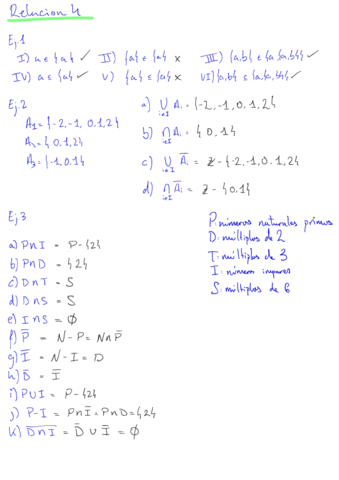 Relacion 4
Ej.1
I) a ∈ {a} ✓ II) {a} ∈ {a} x III) {a,b} ∈ {a,{a,b}} ✓
IV) a ⊆ {a} ✓ V) {a} ⊆ {a} x VI) {a,b} ⊆ {a,{a,b}} ✓
Ej.2
A₁ = {-2,-1,0,1,2}
A₂ = {0,1,2}
A₃ = {-1,0,1}
a) ⋃ i∈I Aᵢ = {-2,-1,0,1,2}
b) ⋂ i∈I Aᵢ = {0,1}
c) ⋃ i∈I A̅ᵢ = Z - {-2,-1,0,1,2}
d) ⋂ i∈I A̅ᵢ = Z - {0,1}
Ej.3
P: números naturales primos
D: múltiplos de 2
T: múltiplos de 3
I: números impares
S: múltiplos de 6
a) P∩I = P-{2}
b) P∩D = {2}
c) D∩T = S
d) D∩S = S
e) I∩S = ∅
f) P̅ = N - P = N∩P̅
g) I̅ = N - I = D
h) D̅ = I̅
i) P∪I = P-{2}
j) P-I = P∩I̅ = P∩D = {2}
k) D̅∩̅I̅ = D̅ ∪ I̅ = ∅